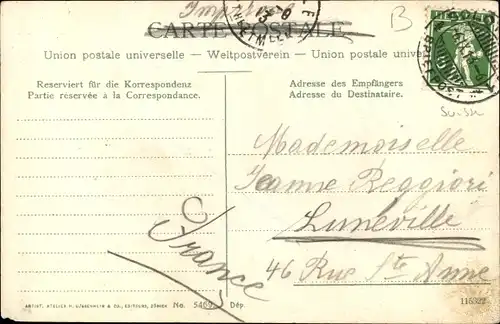 Imprimé
CARTE POSTALE
B
Union postale universelle – Weltpostverein – Union postale
Suisse
Reserviert für die Korrespondenz
Partie réservée à la Correspondance.
Adresse des Empfängers
Adresse du Destinataire.
Mademoiselle
Jeanne Reggiori
Lunéville
46 Rue Ste Anne
France
No. 5469
Dép.
115322